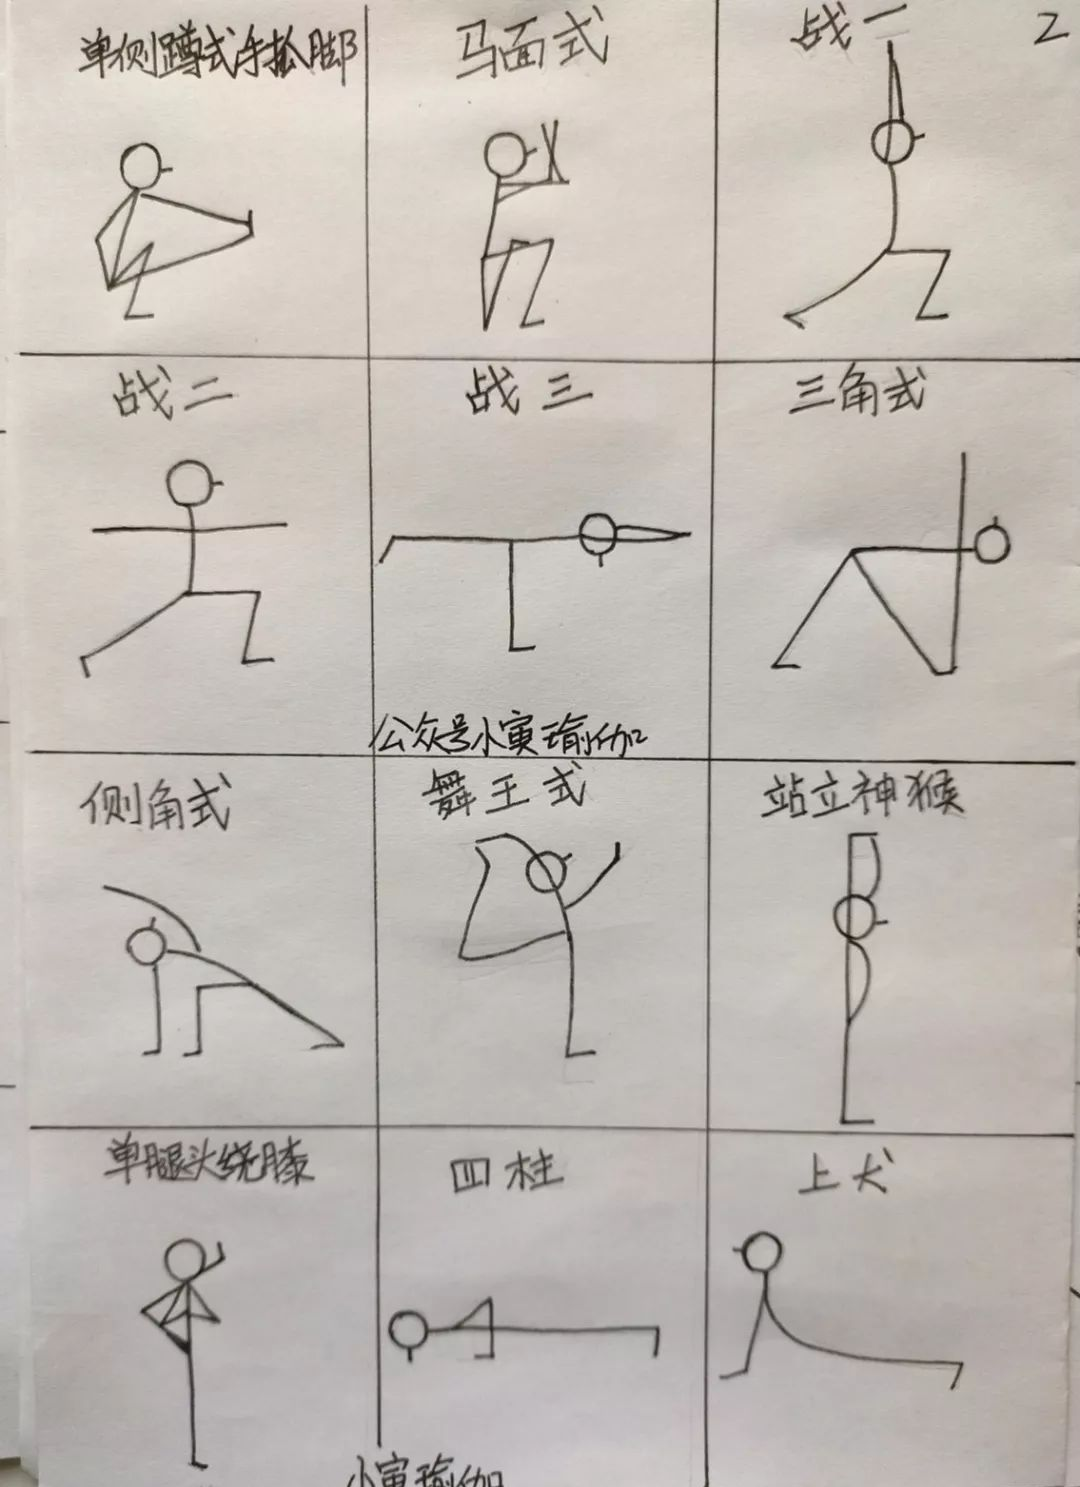 单侧蹲式手抓脚
马面式
战一
2
战二
战三
三角式
公众号小寅瑜伽
侧角式
舞王式
站立神猴
单腿头绕膝
四柱
上犬
小寅瑜伽